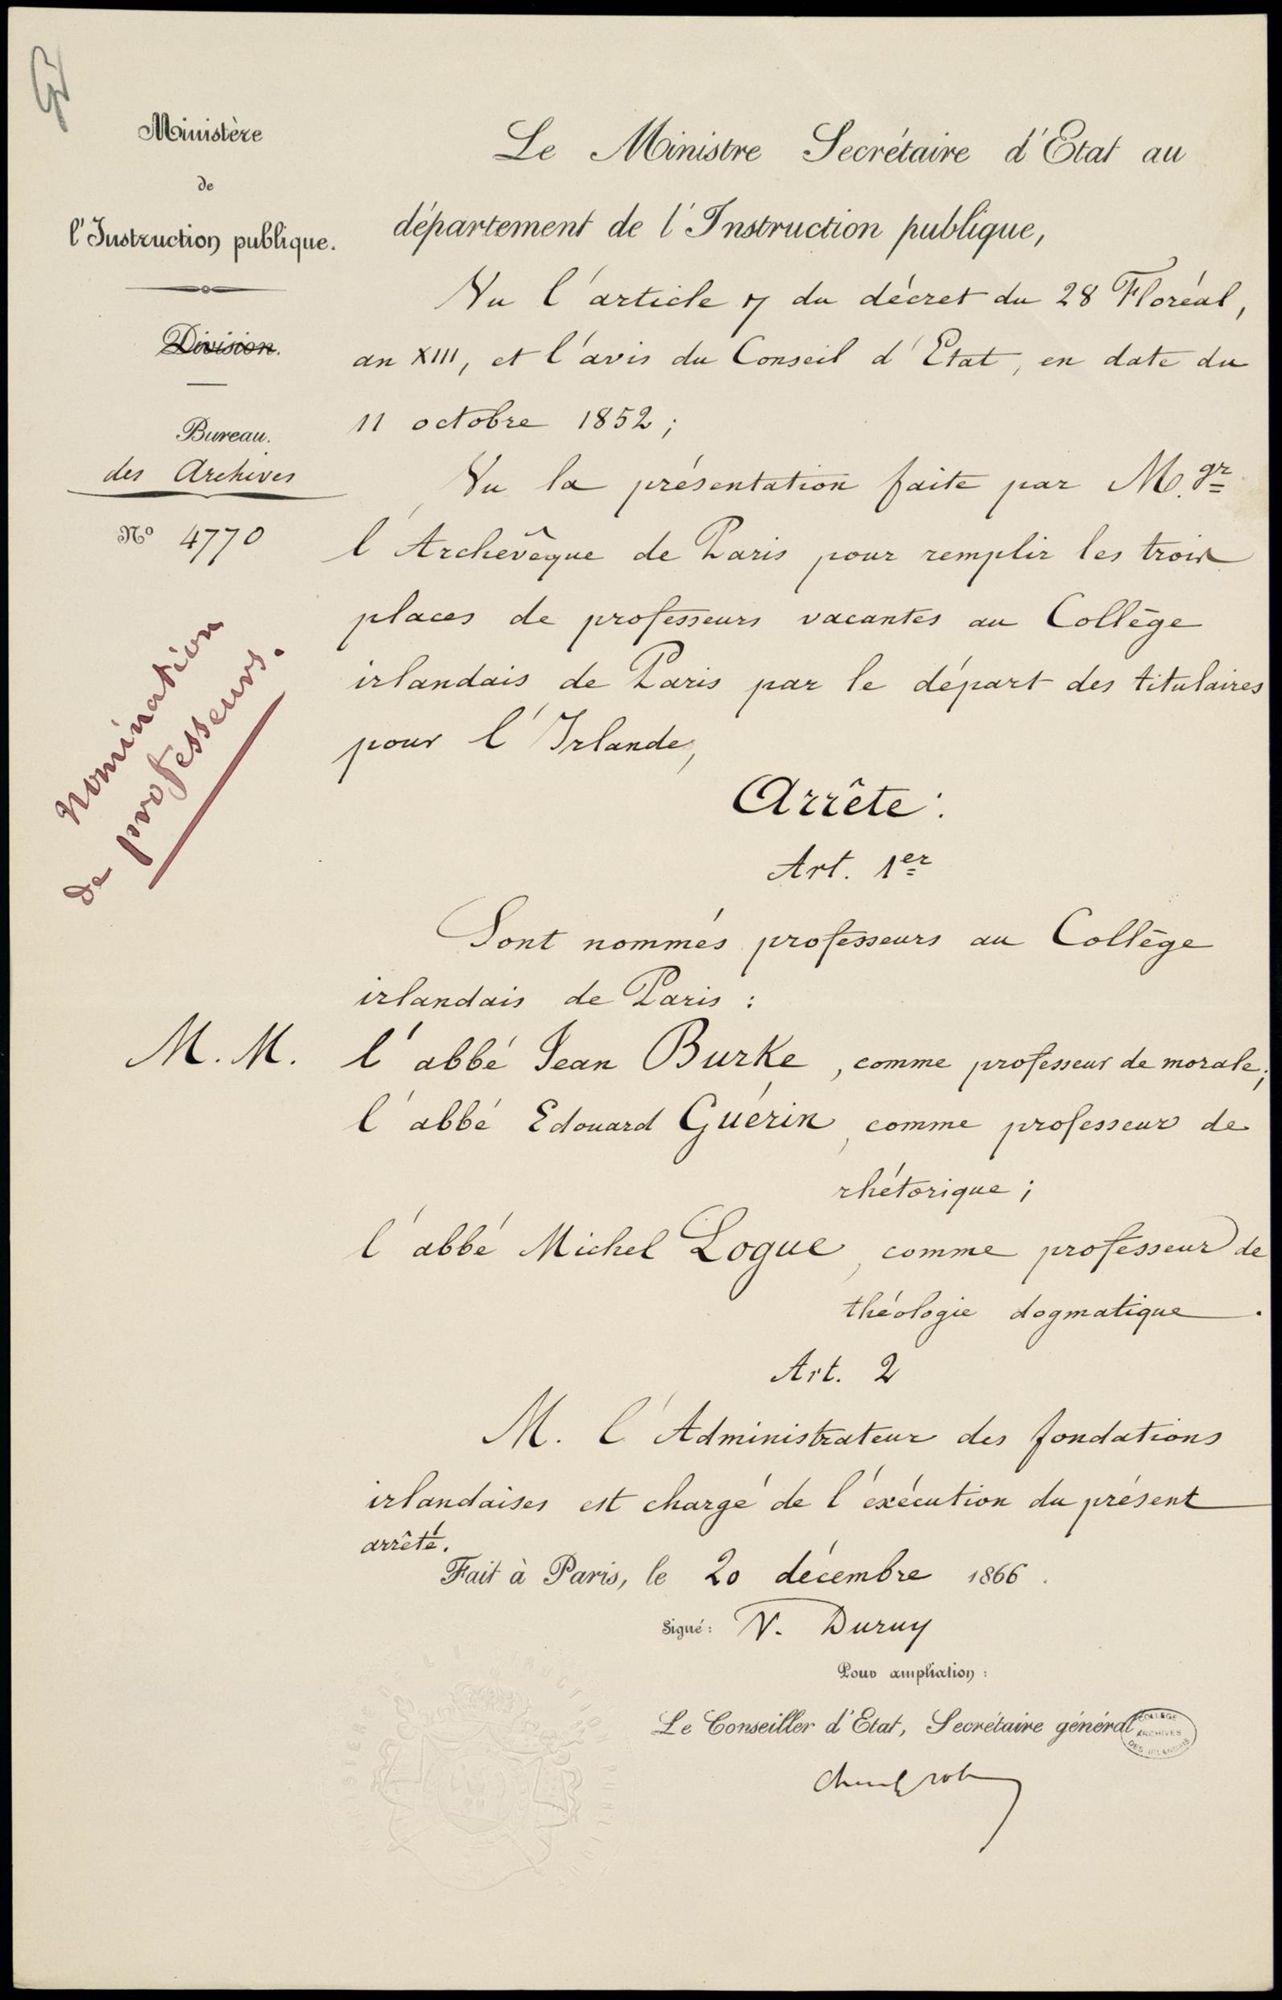 Ministère
de
l'Instruction publique.
Division.
Bureau.
des Archives
Nº 4770
nomination
de professeurs.
Le Ministre Secrétaire d'Etat au
département de l'Instruction publique,
Vu l'article 7 du décret du 28 Floréal,
an XIII, et l'avis du Conseil d'Etat, en date du
11 octobre 1852;
Vu la présentation faite par M.gr
l'Archevêque de Paris pour remplir les trois
places de professeurs vacantes au Collège
irlandais de Paris par le départ des titulaires
pour l'Irlande,
Arrête:
Art. 1er
Sont nommés professeurs au Collège
irlandais de Paris :
M. M. l'abbé Jean Burke, comme professeur de morale;
l'abbé Edouard Guérin, comme professeur de
rhétorique;
l'abbé Michel Logue, comme professeur de
théologie dogmatique.
Art. 2
M. l'Administrateur des fondations
irlandaises est chargé de l'exécution du présent
arrêté.
Fait à Paris, le 20 décembre 1866.
Signé: V. Duruy
Pour ampliation:
Le Conseiller d'Etat, Secrétaire général
COLLEGE
ARCHIVES
DES IRLANDAIS